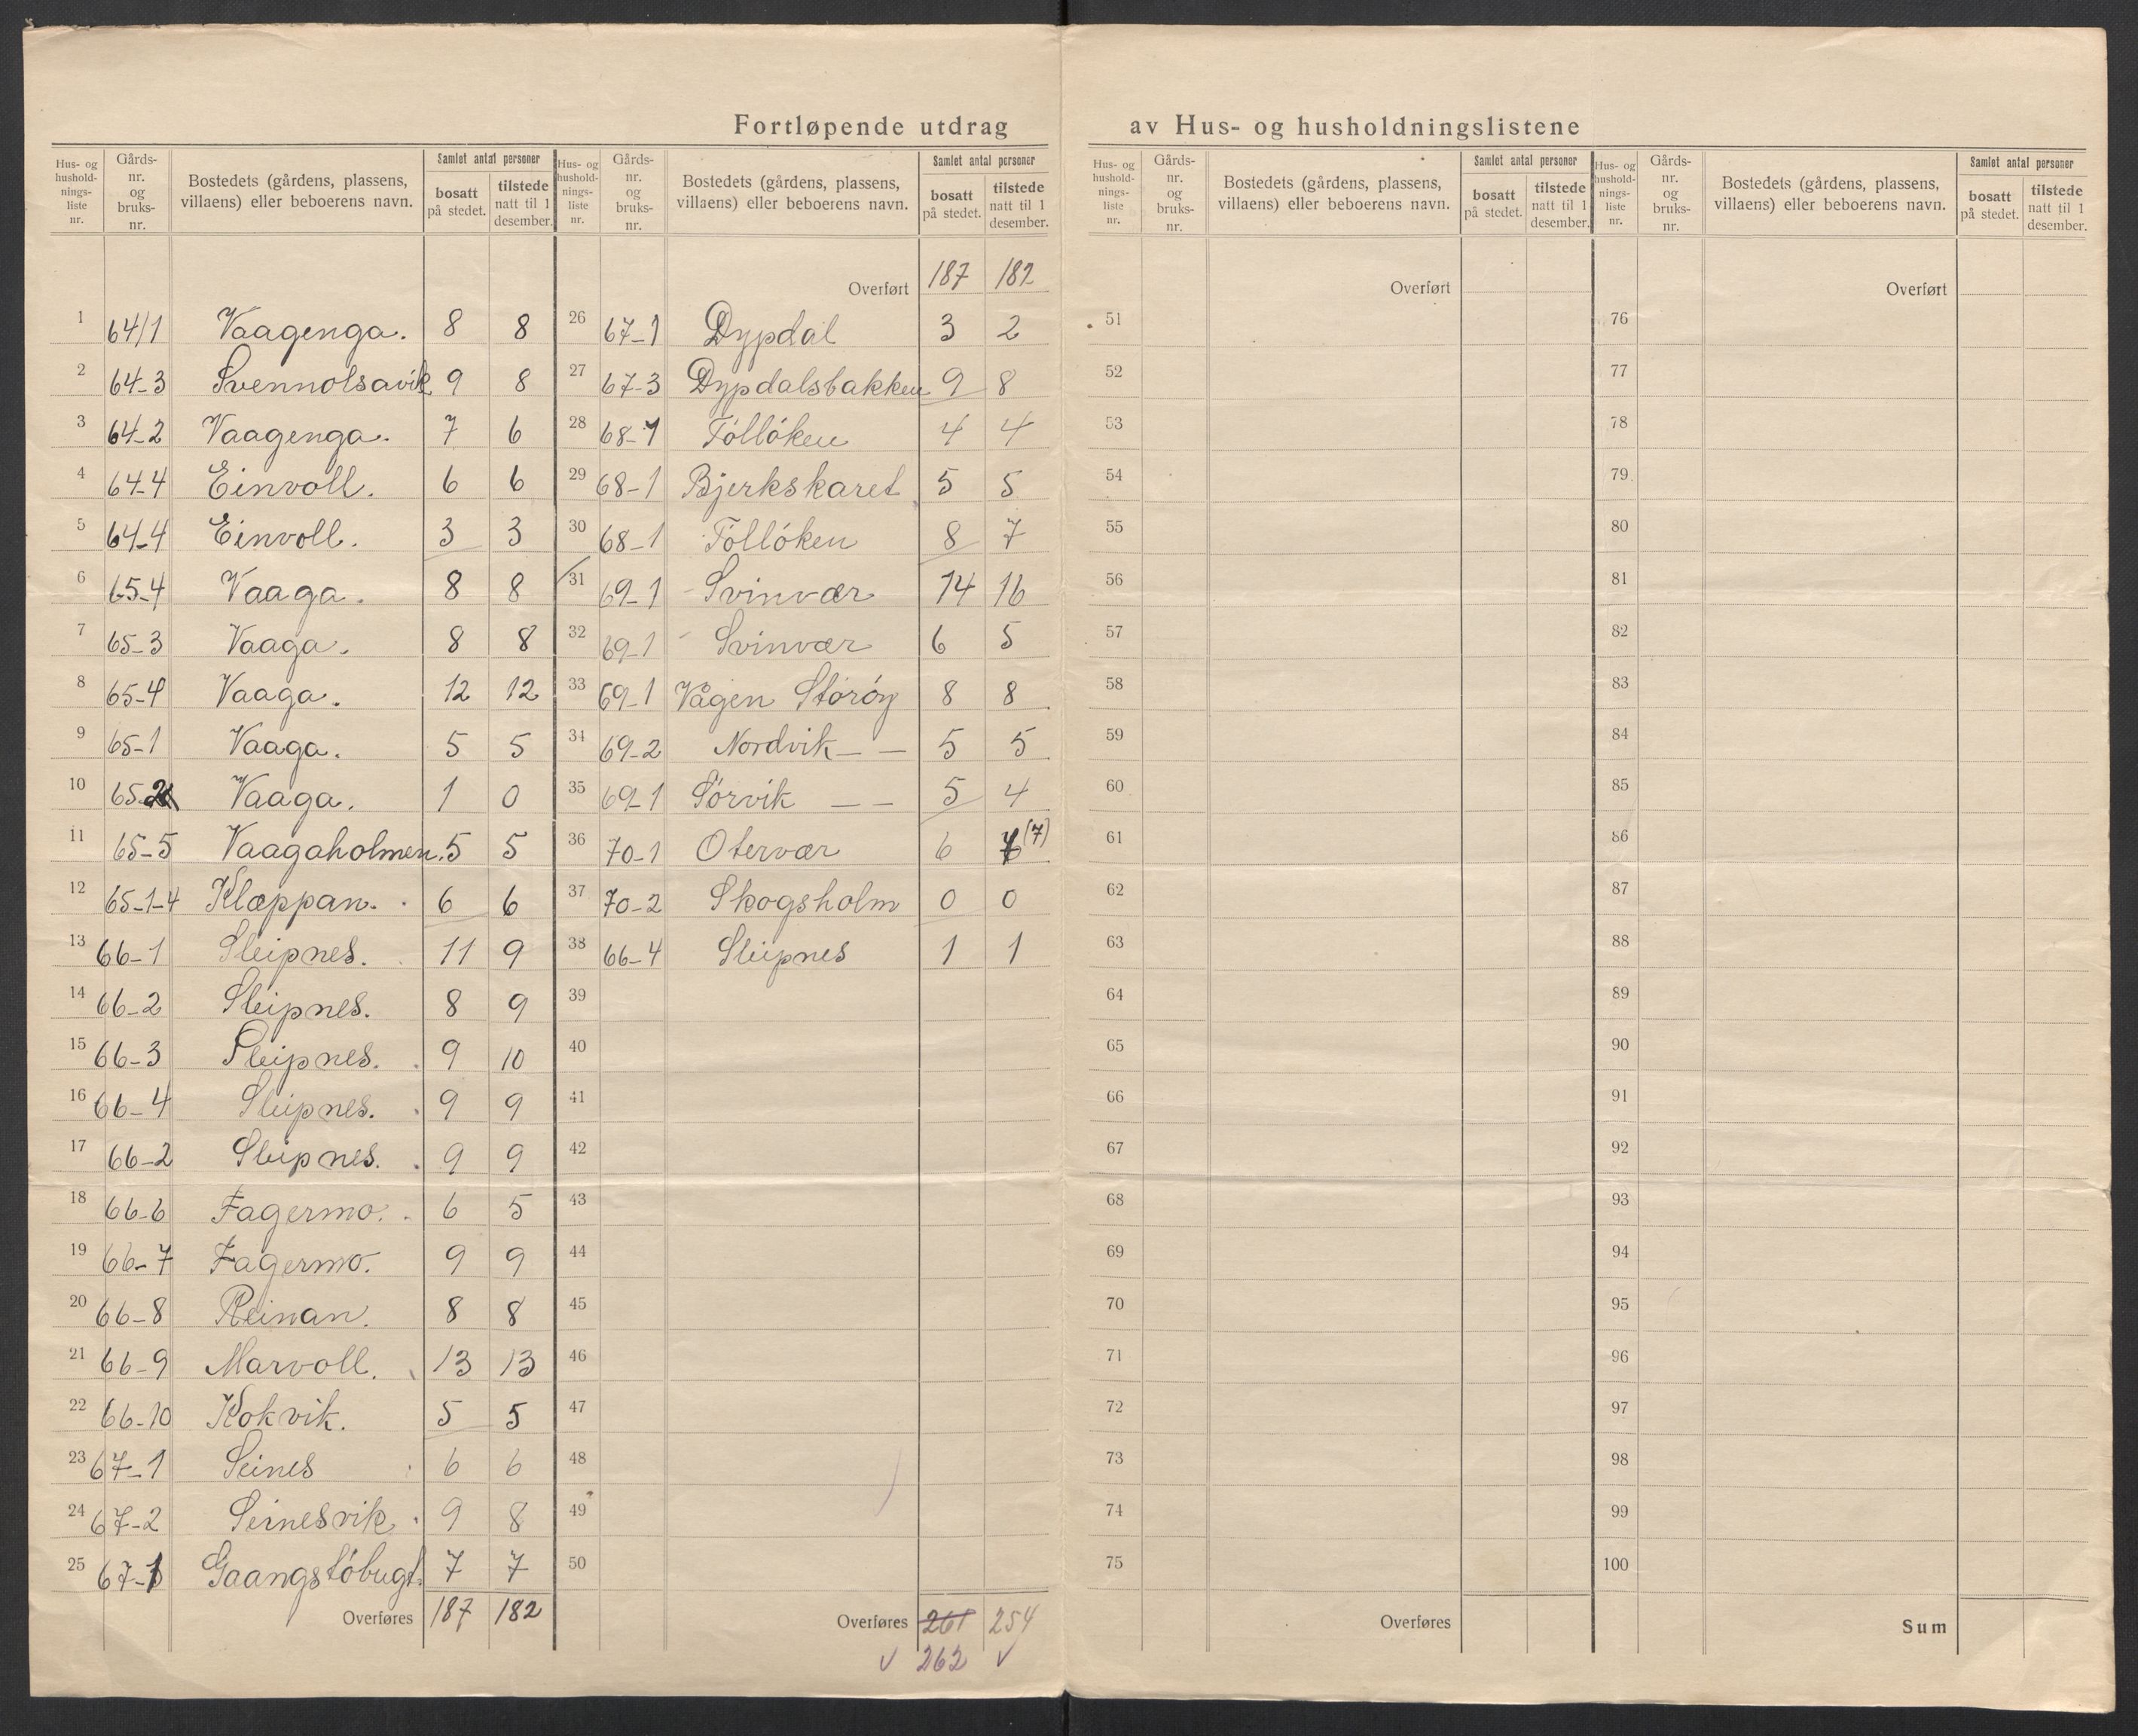 Fortløpende utdrag av Hus- og husholdningslistene
Hus- og hushold-nings-liste nr. | Gårds-nr. og bruks-nr. | Bostedets (gårdens, plassens, villaens) eller beboerens navn. | Samlet antal personer | bosatt på stedet. | tilstede natt til 1 desember.
1 64/1 Vaagenga. 8 8
2 64-3 Svennolsavik 9 8
3 64-2 Vaagenga. 7 6
4 64-4 Einvoll. 6 6
5 64-4 Einvoll. 3 3
6 65-4 Vaaga. 8 8
7 65-3 Vaaga. 8 8
8 65-4 Vaaga. 12 12
9 65-1 Vaaga. 5 5
10 65-2 Vaaga. 1 0
11 65-5 Vaagaholmen. 5 5
12 65-1-4 Klæppan. 6 6
13 66-1 Sleipnes. 11 9
14 66-2 Sleipnes. 8 9
15 66-3 Sleipnes. 9 10
16 66-4 Sleipnes. 9 9
17 66-2 Sleipnes. 9 9
18 66-6 Fagermo. 6 5
19 66-7 Fagermo. 9 9
20 66-8 Reinan. 8 8
21 66-9 Marvoll. 13 13
22 66-10 Kokvik. 5 5
23 67-1 Seines 6 6
24 67-2 Seinesvik 9 8
25 67-1 Gaangstöbugt. 7 7
Overføres 187 182
Hus- og hushold-nings-liste nr. | Gårds-nr. og bruks-nr. | Bostedets (gårdens, plassens, villaens) eller beboerens navn. | Samlet antal personer | bosatt på stedet. | tilstede natt til 1 desember.
Overført 187 182
26 67-1 Dypdal 3 2
27 67-3 Dypdalsbakken 9 8
28 68-1 Tóllóken 4 4
29 68-1 Bjerkskaret 5 5
30 68-1 Tóllóken 8 7
31 69-1 Svinvær 14 16
32 69-1 Svinvær 6 5
33 69-1 Vågen Störóy 8 8
34 69-2 Nordvik — — 5 5
35 69-1 Sórvik — — 5 4
36 70-1 Otervær 6 7 (7)
37 70-2 Skogsholm 0 0
38 66-4 Sleipnes 1 1
39
40
41
42
43
44
45
46
47
48
49
50
Overføres 261 254
262
Hus- og hushold-nings-liste nr. | Gårds-nr. og bruks-nr. | Bostedets (gårdens, plassens, villaens) eller beboerens navn. | Samlet antal personer | bosatt på stedet. | tilstede natt til 1 desember.
Overført
51
52
53
54
55
56
57
58
59
60
61
62
63
64
65
66
67
68
69
70
71
72
73
74
75
Overføres
Hus- og hushold-nings-liste nr. | Gårds-nr. og bruks-nr. | Bostedets (gårdens, plassens, villaens) eller beboerens navn. | Samlet antal personer | bosatt på stedet. | tilstede natt til 1 desember.
Overført
76
77
78
79
80
81
82
83
84
85
86
87
88
89
90
91
92
93
94
95
96
97
98
99
100
Sum